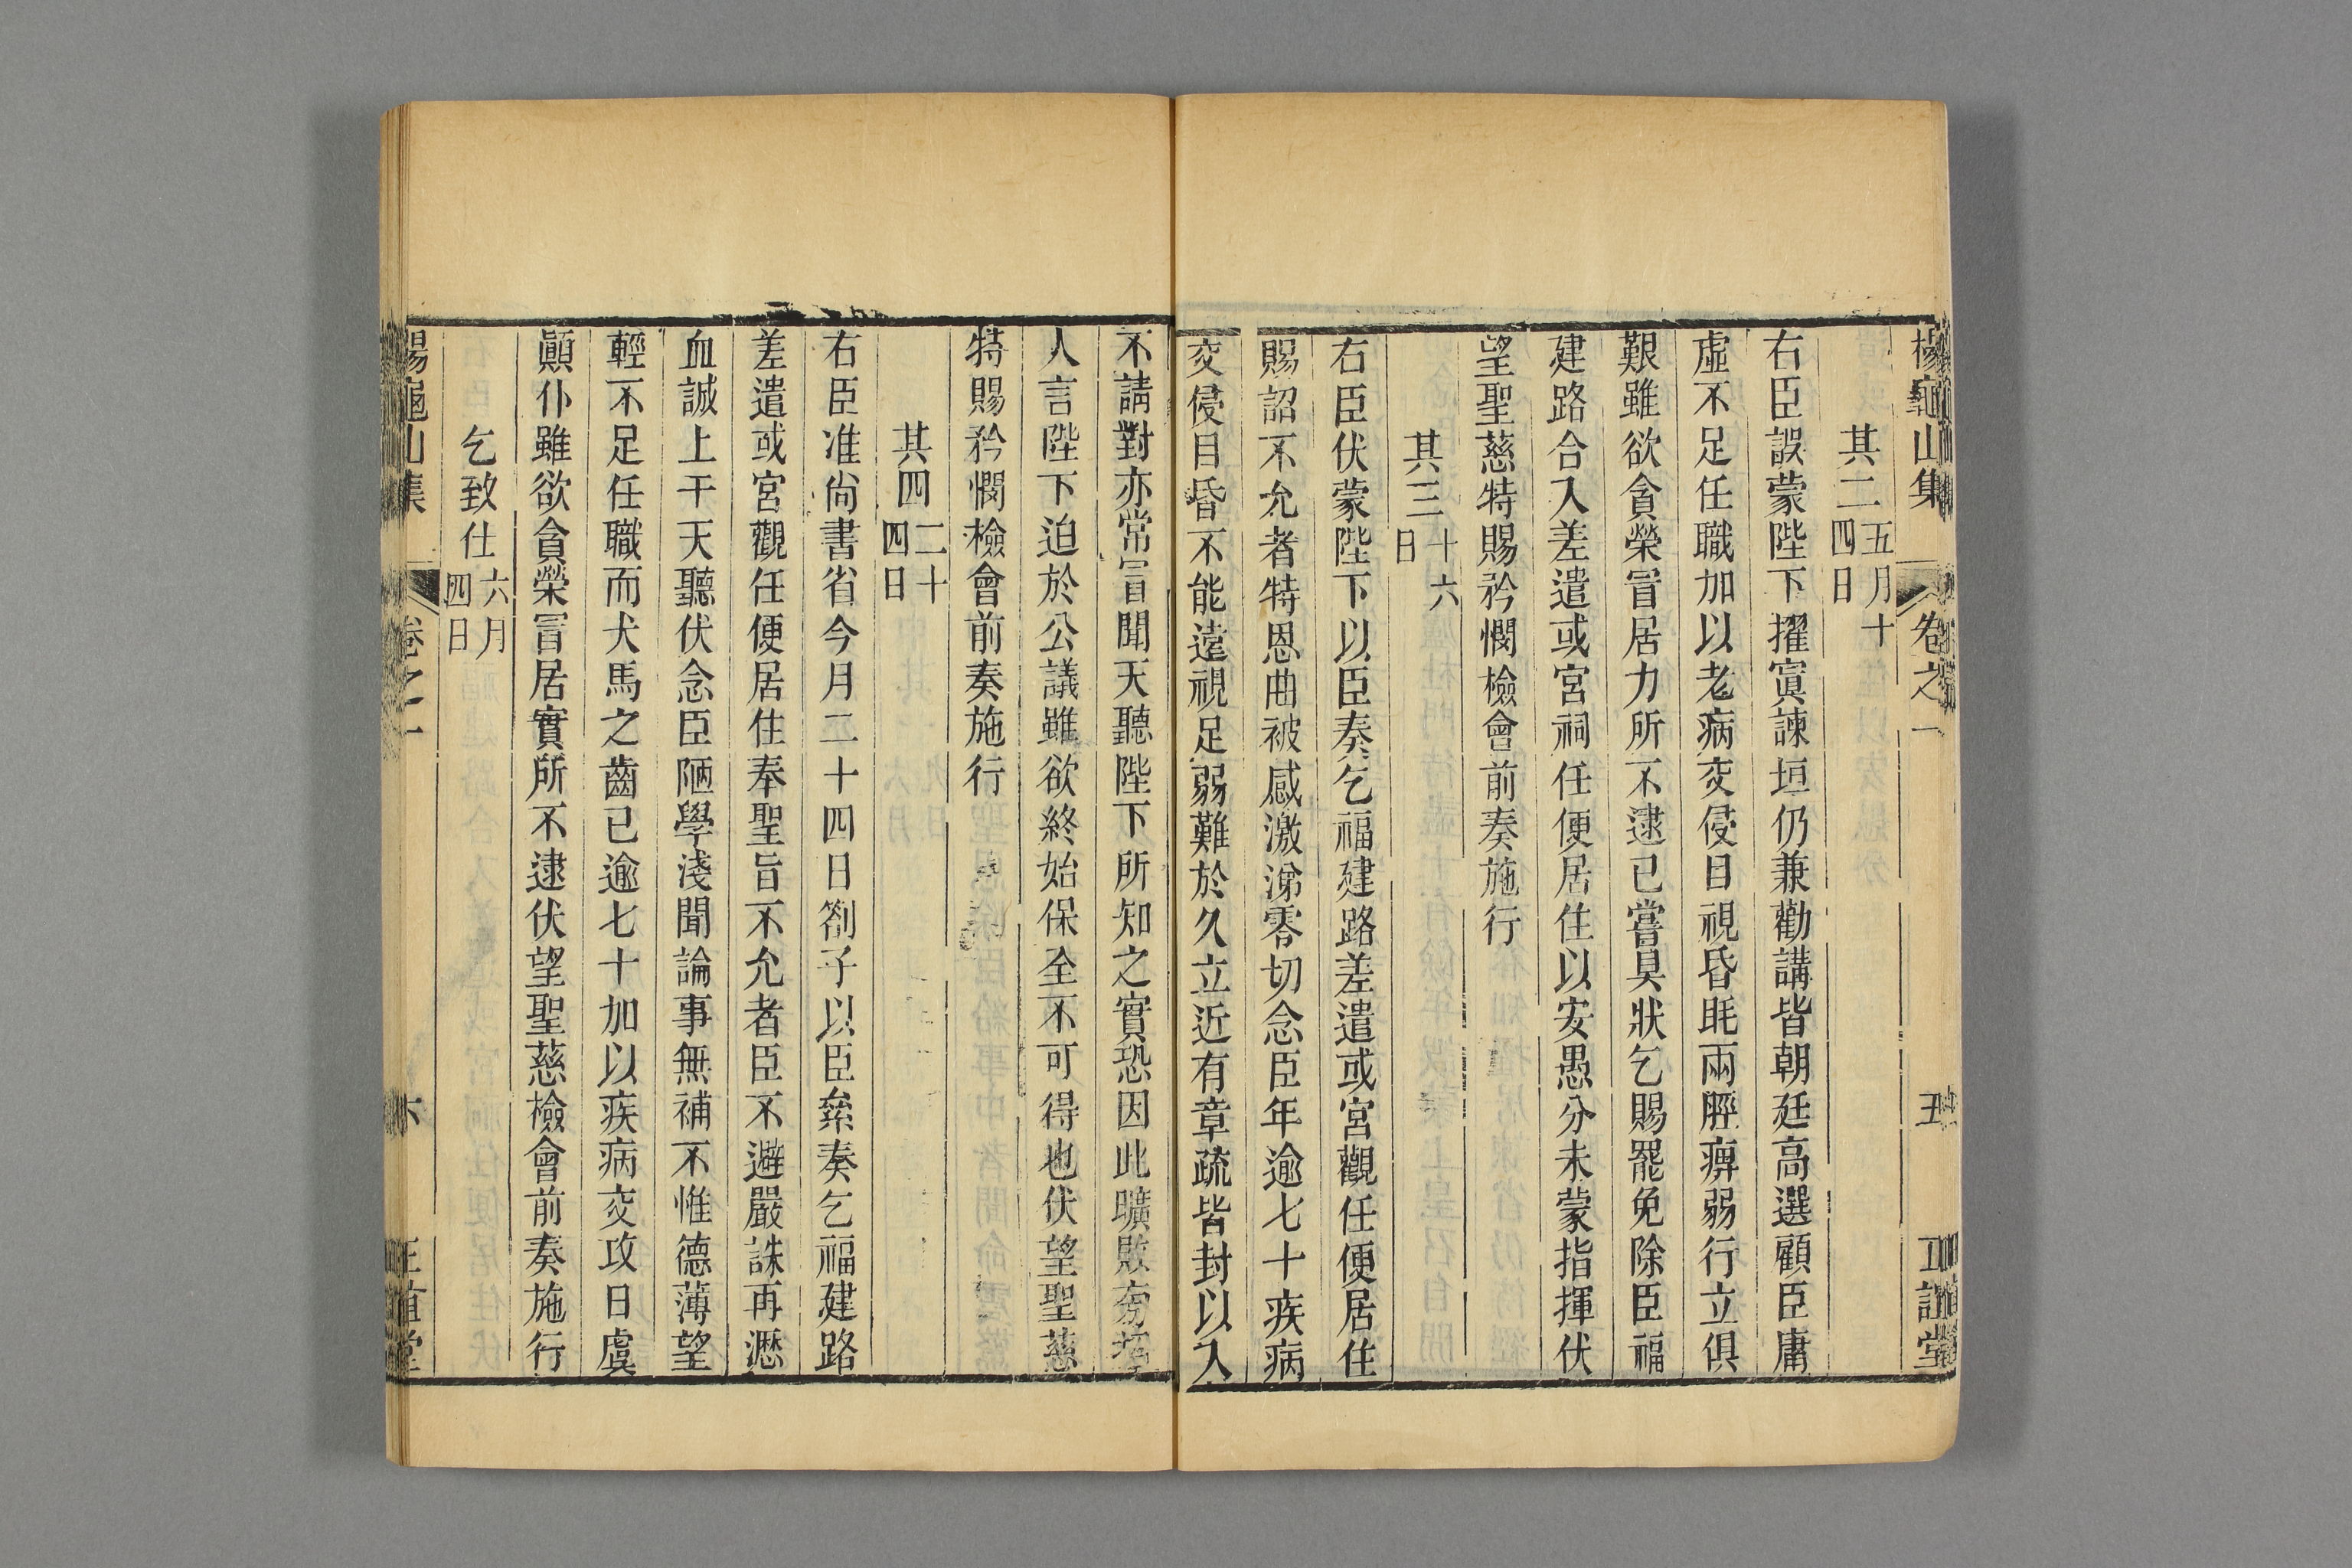 楊龜山集 卷之一 五 正誼堂
其二 五月十四日
右臣誤蒙陛下擢寘諫垣仍兼勸講皆朝廷高選顧臣庸
虛不足任職加以老病交侵目視昏眊兩脛痹弱行立俱
艱雖欲貪榮冒居力所不逮已嘗具狀乞賜罷免除臣福
建路合入差遣或宮祠任便居住以安愚分未蒙指揮伏
望聖慈特賜矜憫檢會前奏施行
其三 十六日
右臣伏蒙陛下以臣奏乞福建路差遣或宮觀任便居住
賜詔不允者特恩曲被感激涕零切念臣年逾七十疾病
交侵目昏不能遠視足弱難於久立近有章疏皆封以入
不請對亦常冒聞天聽陛下所知之實恐因此曠敗旁招
人言陛下迫於公議雖欲終始保全不可得也伏望聖慈
特賜矜憫檢會前奏施行
其四 二十四日
右臣准尙書省今月二十四日劄子以臣絫奏乞福建路
差遣或宮觀任便居住奉聖旨不允者臣不避嚴誅再瀝
血誠上干天聽伏念臣陋學淺聞論事無補不惟德薄望
輕不足任職而犬馬之齒已逾七十加以疾病交攻日虞
顚仆雖欲貪榮冒居實所不逮伏望聖慈檢會前奏施行
乞致仕 六月四日
楊龜山集 卷之一 六 正誼堂